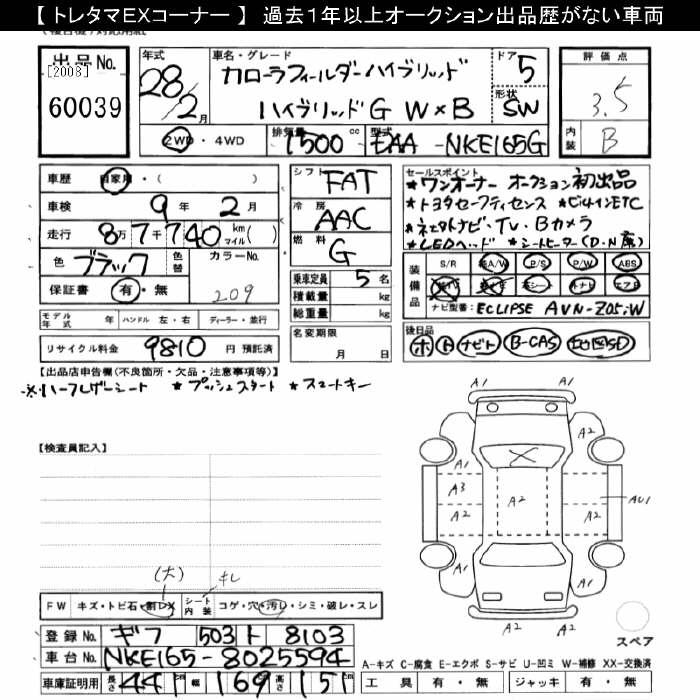 【 トレタマEXコーナー 】 過去1年以上オークション出品歴がない車両
出品No.
[2008]
60039
年式
28年
2月
車名・グレード
カローラフィールダーハイブリッド
ハイブリッドG W×B
ドア
5
形状
SW
2WD・4WD
排気量
1500 cc
型式
EAA - NKE165G
評価点
3.5
内装
B
車歴 自家用・( )
車検 9年 2月
走行 8万7千740 km マイル( )
色 ブラック 色替 カラーNo.
209
保証書 有・無
シフト
FAT
冷房
AAC
燃料
G
乗車定員 5 名
積載量 kg
総重量 kg
名変期限
月 日
セールスポイント
★ワンオーナー オークション初出品
★トヨタセーフティセンス ★ビルインETC
★ LEDヘッド ★シートヒーター(D・N席)
装備品
S/R 純A/W P/S P/W ABS
純TV 純ナビ 革シート ナビ エアB
ナビ型番: ECLIPSE AVN-Z05iW
モデル年式 年 ハンドル 左・右 ディーラー・並行
リサイクル料金 9810 円 預託済
後日品
ホ ト ナビト B-CAS 地図SD
【出品店申告欄(不良箇所・欠品・注意事項等)】
※ハーフレザーシート ★プッシュスタート ★スマートキー
【検査員記入】
A1 A1
A2 A2
A1 A1
A3 A2
A2 A2 AU1
A1 A1
A2 A2
スペア
(大) キレ
FW キズ・トビ石・割レX シート内装 コゲ・穴・汚レ・シミ・破レ・スレ
登録No. ギフ 503 ト 8103
車台No. NKE165-8025594
車庫証明用 長さ 441 幅 169 高さ 151 cm
A-キズ C-腐食 E-エクボ S-サビ U-凹ミ W-補修 XX-交換済
工具 有・無 ジャッキ 有・無